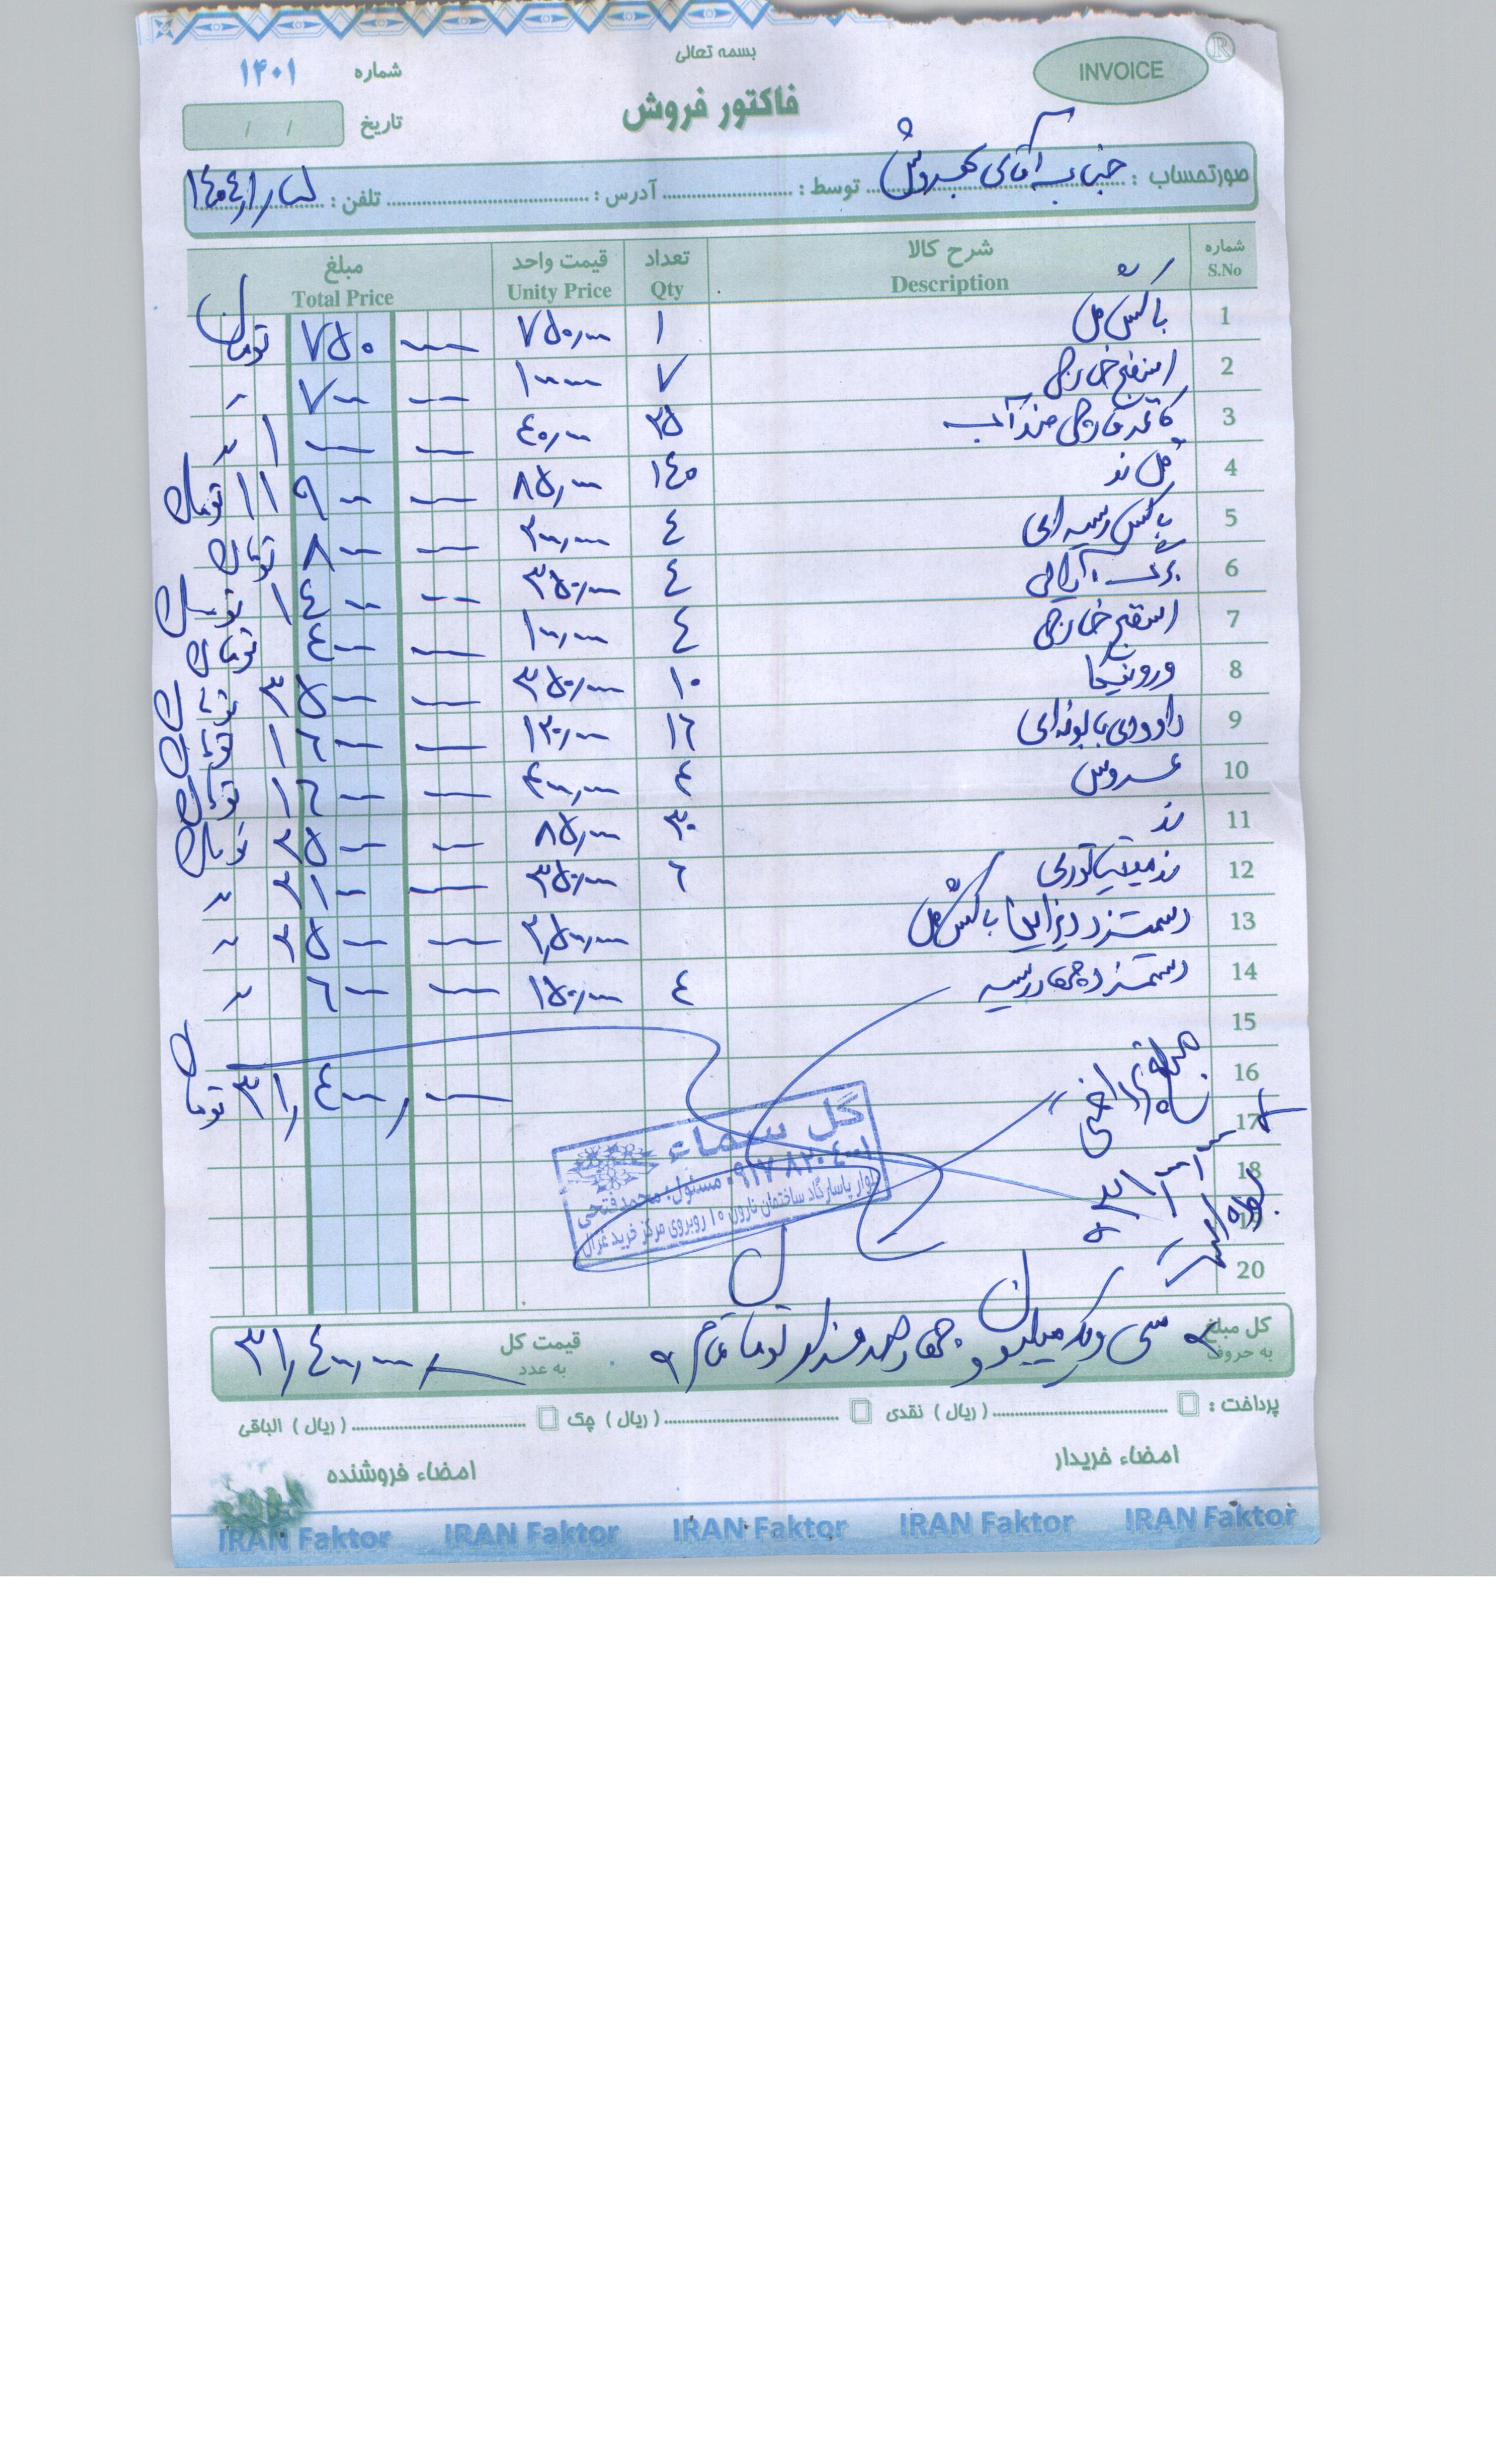 بسمه تعالی
INVOICE ®
فاکتور فروش
شماره ۱۴۰۱
تاریخ / /
صورتحساب : جناب آقای توسط : آدرس : تلفن :
شماره S.No شرح کالا Description تعداد Qty قیمت واحد Unity Price مبلغ Total Price
1 باکس گل ۱ ۷۵۰,۰۰۰ ۷۵۰ ۰۰۰ تومان
2 اسفنج خارجی ۷ ۱۰۰۰۰۰ ۷۰۰ ۰۰۰ "
3 کاغذ ضد آب ۲۵ ۴۰,۰۰۰ ۱ ۰۰۰ ۰۰۰ "
4 گل رز ۱۴۰ ۸۵,۰۰۰ ۱۱ ۹۰۰ ۰۰۰ تومان
5 باکس ۴ ۲۰۰,۰۰۰ ۸۰۰ ۰۰۰ تومان
6 برگ ۴ ۳۵۰,۰۰۰ ۱ ۴۰۰ ۰۰۰ تومان
7 اسفنج خارجی ۴ ۱۰۰,۰۰۰ ۴۰۰ ۰۰۰ تومان
8 ورونیکا ۱۰ ۳۵۰,۰۰۰ ۳ ۵۰۰ ۰۰۰ تومان
9 داوودی بابونه‌ای ۱۲ ۱۳۰,۰۰۰ ۱ ۶۰۰ ۰۰۰ تومان
10 عروس ۴ ۴۰۰,۰۰۰ ۱ ۶۰۰ ۰۰۰ تومان
11 رز ۳۰ ۸۵,۰۰۰ ۲ ۵۰۰ ۰۰۰ تومان
12 رز مینیاتوری ۶ ۳۵۰,۰۰۰ ۲ ۱۰۰ ۰۰۰ "
13 دستمزد دیزاین باکس گل ۲,۵۰۰,۰۰۰ ۲ ۵۰۰ ۰۰۰ "
14 دستمزد چهار ۴ ۱۵۰,۰۰۰ ۶۰۰ ۰۰۰ "
15
16 ۳۱,۴۰۰,۰۰۰ تومان
17
18
19
20
گل سماء
۰۹۱۷۸۲۰۴۰۰۱ مسئول: محمد فتحی
بلوار پاسارگاد ساختمان نارون ۱۰ روبروی مرکز خرید غزال
کل مبلغ به حروف سی و یک میلیون و چهارصد هزار تومان تمام قیمت کل به عدد ۳۱,۴۰۰,۰۰۰
پرداخت : (ریال) نقدی (ریال) چک (ریال) الباقی
امضاء خریدار امضاء فروشنده
IRAN Faktor IRAN Faktor IRAN Faktor IRAN Faktor IRAN Faktor